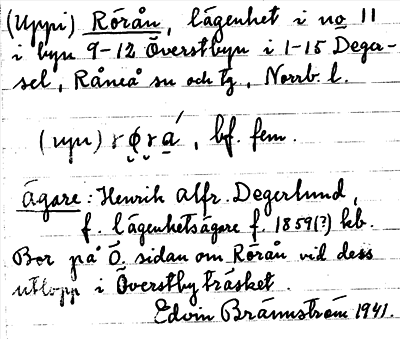 (Uppi) Rörån, lägenhet i no 11
i byn 9-12 Överstbyn i 1-15 Deger-
sel, Råneå sn och tg, Norrb. l.
(upı) rø̬r̬á̱, bf. fem.
Ägare: Henrik Alfr. Degerlund,
f. lägenhetsägare f. 1859(?) kb.
Bor på Ö. sidan om Rörån vid dess
utlopp i Överstbyträsket.
Edvin Brännström 1941.